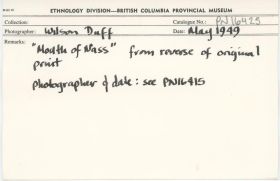 ETHNOLOGY DIVISION—BRITISH COLUMBIA PROVINCIAL MUSEUM
Collection: Catalogue No.: PN16425
Photographer: Wilson Duff Date: May 1949
Remarks:
"Mouth of Nass" from reverse of original
print
photographer & date: see PN16415